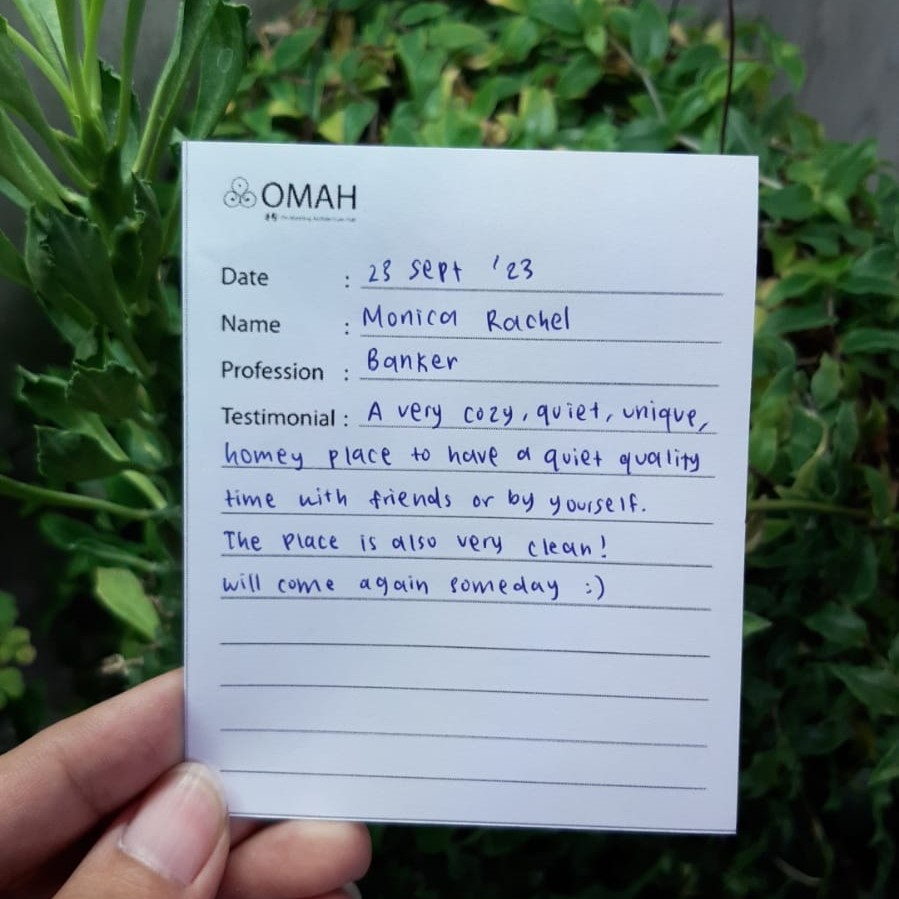 OMAH
Date : 23 Sept '23
Name : Monica Rachel
Profession : Banker
Testimonial : A very cozy, quiet, unique,
homey place to have a quiet quality
time with friends or by yourself.
The place is also very clean!
will come again someday :)